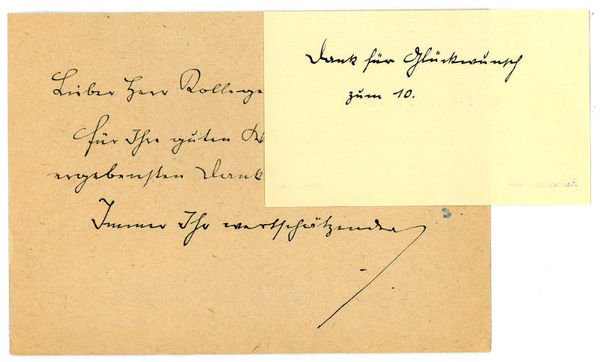 Lieber Herr Kollege
für Ihre guten
ergebensten Dank
Immer Ihr wertschätzender
Dank für Glückwunsch
zum 10.